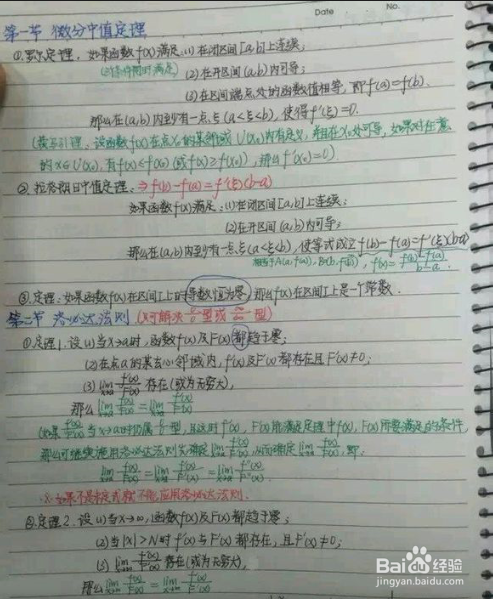 Date No.
第一节 微分中值定理
①罗尔定理. 如果函数f(x)满足:(1)在闭区间[a,b]上连续;
(3条件同时满足) (2)在开区间(a,b)内可导;
(3)在区间端点处的函数值相等,即f(a)=f(b).
那么在(a,b)内至少有一点ξ(a<ξ<b),使得f'(ξ)=0.
(费马引理. 设函数f(x)在点x₀的某邻域U(x₀)内有定义,并且在x₀处可导,如果对任意
的x∈U(x₀),有f(x)≤f(x₀)(或f(x)≥f(x₀)),那么f'(x₀)=0)
②拉格朗日中值定理. ⇒f(b)-f(a)=f'(ξ)(b-a)
如果函数f(x)满足:(1)在闭区间[a,b]上连续;
(2)在开区间(a,b)内可导;
那么在(a,b)内至少有一点ξ(a<ξ<b),使等式成立f(b)-f(a)=f'(ξ)(b-a)
③定理:如果函数f(x)在区间I上的导数恒为零,那么f(x)在区间I上是一个常数.
第二节 洛必达法则 (只可解决0/0型或∞/∞型)
①定理1. 设(1)当x→a时,函数f(x)及F(x)都趋于零;
(2)在点a的某去心邻域内,f'(x)及F'(x)都存在且F'(x)≠0;
(3) lim x→a f'(x)/F'(x) 存在(或为无穷大),
那么 lim x→a f(x)/F(x) = lim x→a f'(x)/F'(x)
(如果f'(x)/F'(x)当x→a时仍属0/0型,且这时f'(x),F'(x)能满足定理中f(x),F(x)所要满足的条件,
那么可继续使用洛必达法则先确定lim x→a f'(x)/F'(x),从而确定lim x→a f(x)/F(x),即
lim x→a f(x)/F(x) = lim x→a f'(x)/F'(x) = lim x→a f''(x)/F''(x).
※如果不是未定式就不能应用洛必达法则.
②定理2. 设(1)当x→∞,函数f(x)及F(x)都趋于零;
(2)当|x|>N时f'(x)与F'(x)都存在,且F'(x)≠0;
(3) lim x→∞ f'(x)/F'(x) 存在(或为无穷大),
那么 lim x→∞ f(x)/F(x) = lim x→∞ f'(x)/F'(x)
Baidu经验
jingyan.baidu.com